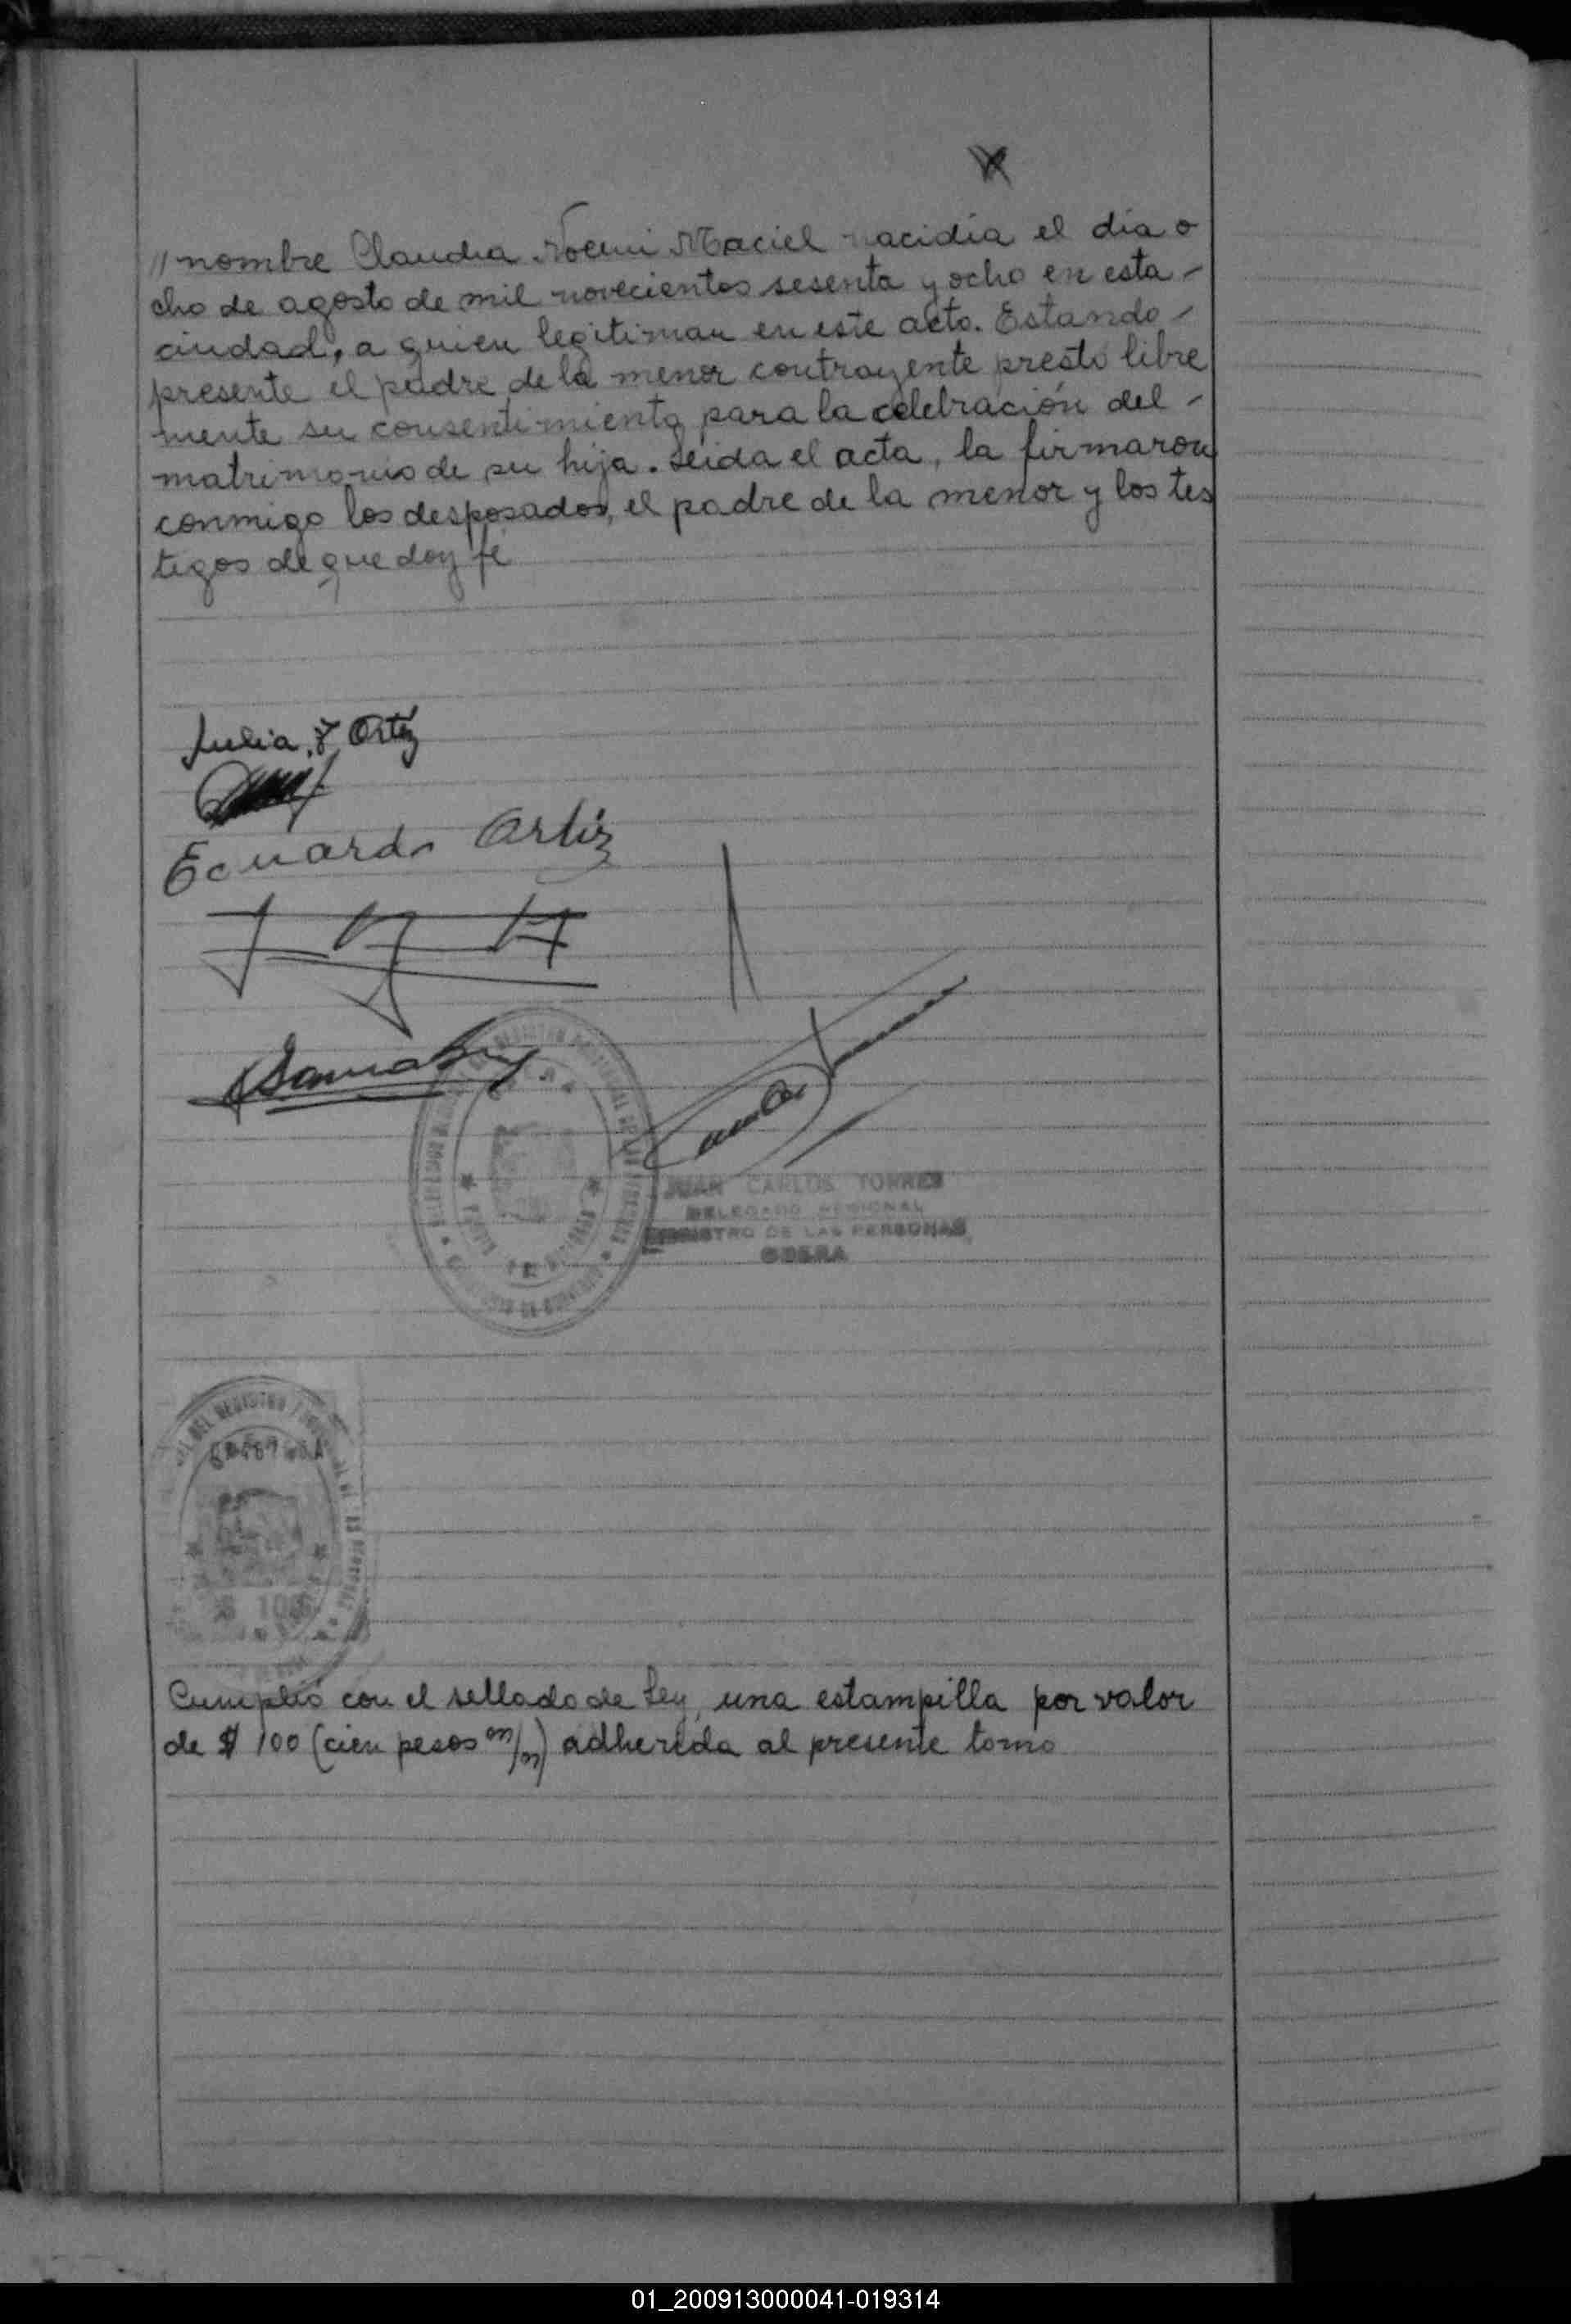 // nombre Claudia Noemi Maciel nacidia el dia o
cho de agosto de mil novecientos sesenta y ocho en esta -
ciudad, a quien legitiman en este acto. Estando -
presente el padre de la menor contrayente prestó libre
mente su consentimiento para la celebración del -
matrimonio de su hija. Leida el acta, la firmaron
conmigo los desposados, el padre de la menor y los tes
tigos de que doy fé
Julia F. Ortiz
Eduardo Ortiz
JUAN CARLOS TORRES
DELEGADO REGIONAL
REGISTRO DE LAS PERSONAS
OBERA
$ 100
Cumplió con el sellado de Ley, una estampilla por valor
de $ 100 (cien pesos m/n) adherida al presente tomo
01_200913000041-019314